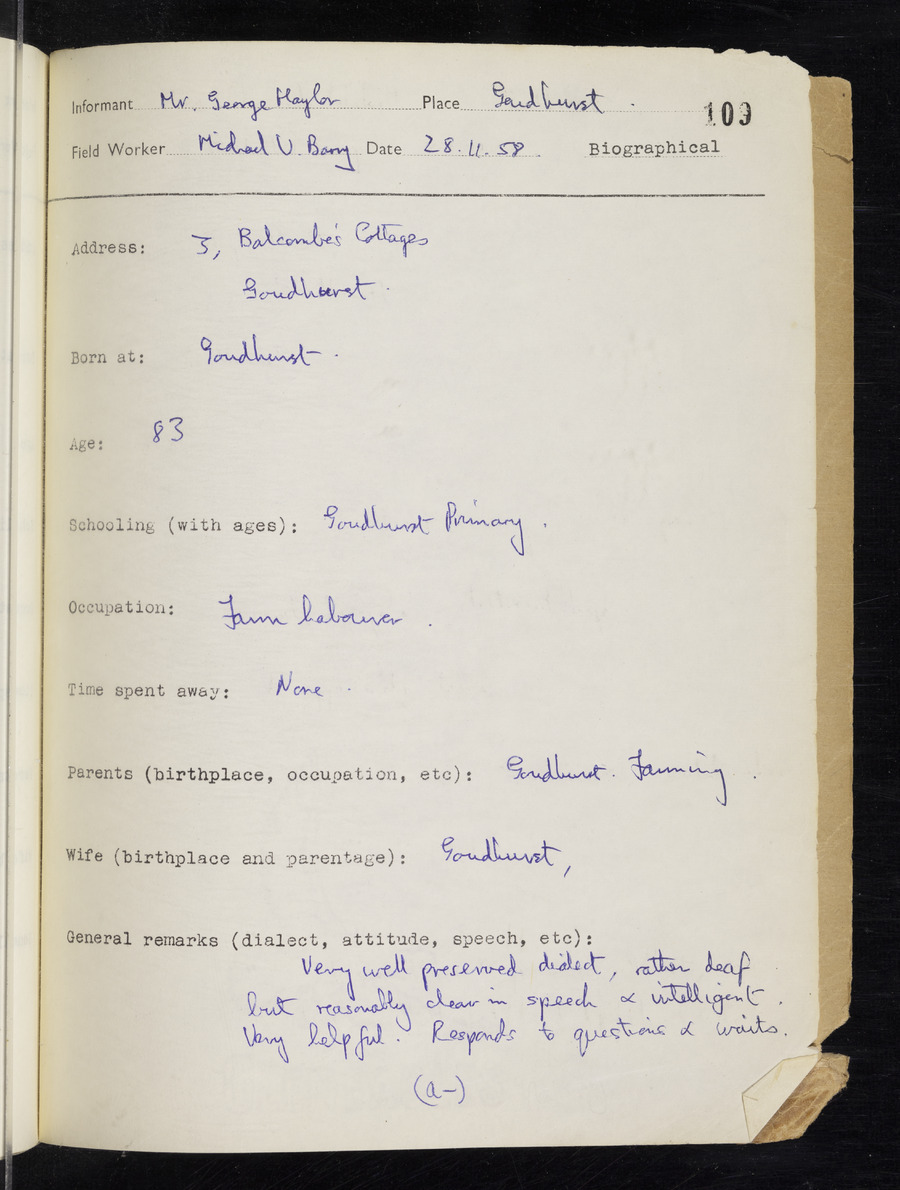 Informant Mr. George Haylor Place Goudhurst.
109
Field Worker Michael V. Barry Date 28.11.59 Biographical
Address: 3, Balcombe's Cottages
Goudhurst.
Born at: Goudhurst.
Age: 83
Schooling (with ages): Goudhurst Primary.
Occupation: Farm labourer.
Time spent away: None.
Parents (birthplace, occupation, etc): Goudhurst. Farming.
Wife (birthplace and parentage): Goudhurst,
General remarks (dialect, attitude, speech, etc):
Very well preserved dialect, rather deaf
but reasonably clear in speech & intelligent.
Very helpful. Responds to questions & waits.
(a-)